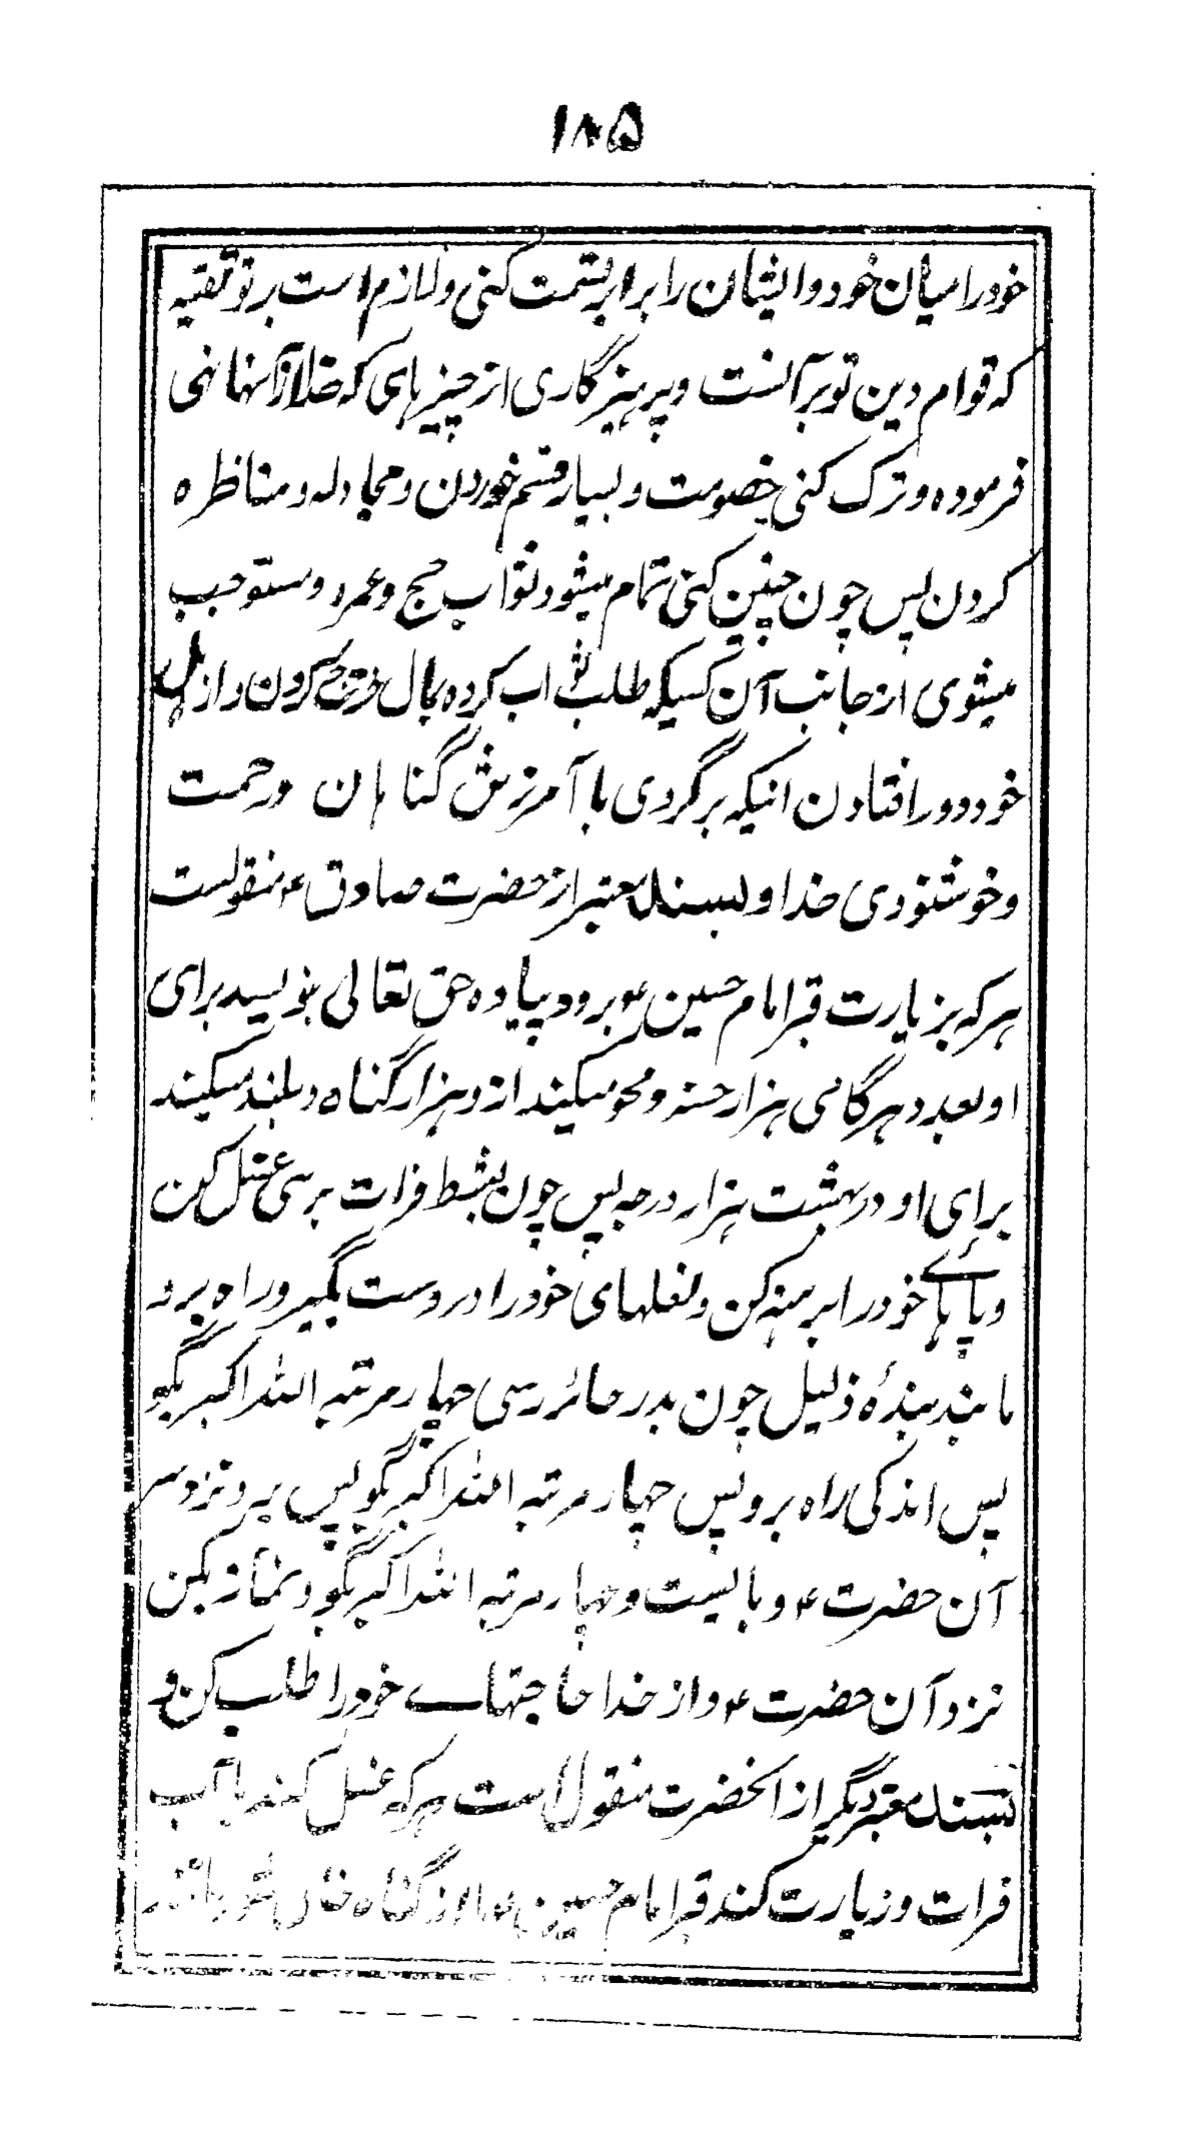 ۱۸۵
خود را میان خود و ایشان را برابر قسمت کنی و لازم است بر تو تقیه
که قوام دین تو بر آنست و پرهیزگاری از چیزهای که خدا از آنها نهی
فرموده و ترک کنی خصومت و بسیار قسم خوردن و مجادله و مناظره
کردن پس چون چنین کنی تمام میشود ثواب حج و عمره و مستوجب
میشوی از جانب آن کسیکه طلب ثواب کرده بمال خرج کردن و از اهل
خود دور افتادن اینکه برگردی با آمرزش گناهان و رحمت
و خوشنودی خدا و بسند معتبر از حضرت صادق ع منقولست
هر که بزیارت قبر امام حسین ع برود پیاده حق تعالی بنویسد برای
او بعدد هر گامی هزار حسنه و محو میکند از و هزار گناه و بلند میکند
برای او در بهشت هزار درجه پس چون بشط فرات برسی غسل کن
و پاهاے خود را برهنه کن و نعلهای خود را در دست بگیر و راه برو
مانند بندهٔ ذلیل چون بدر حائر رسی چهار مرتبه الله اکبر بگو
پس اندکی راه برو پس چهار مرتبه الله اکبر بگو پس برو نزد سر
آن حضرت ع و بایست و چهار مرتبه الله اکبر بگو و نماز بکن
نزد آن حضرت ع و از خدا حاجتهاے خود را طلب کن و
بسند معتبر دیگر از آنحضرت منقول است هر که غسل کند بآب
فرات و زیارت کند قبر امام حسین ع از گناه خالی